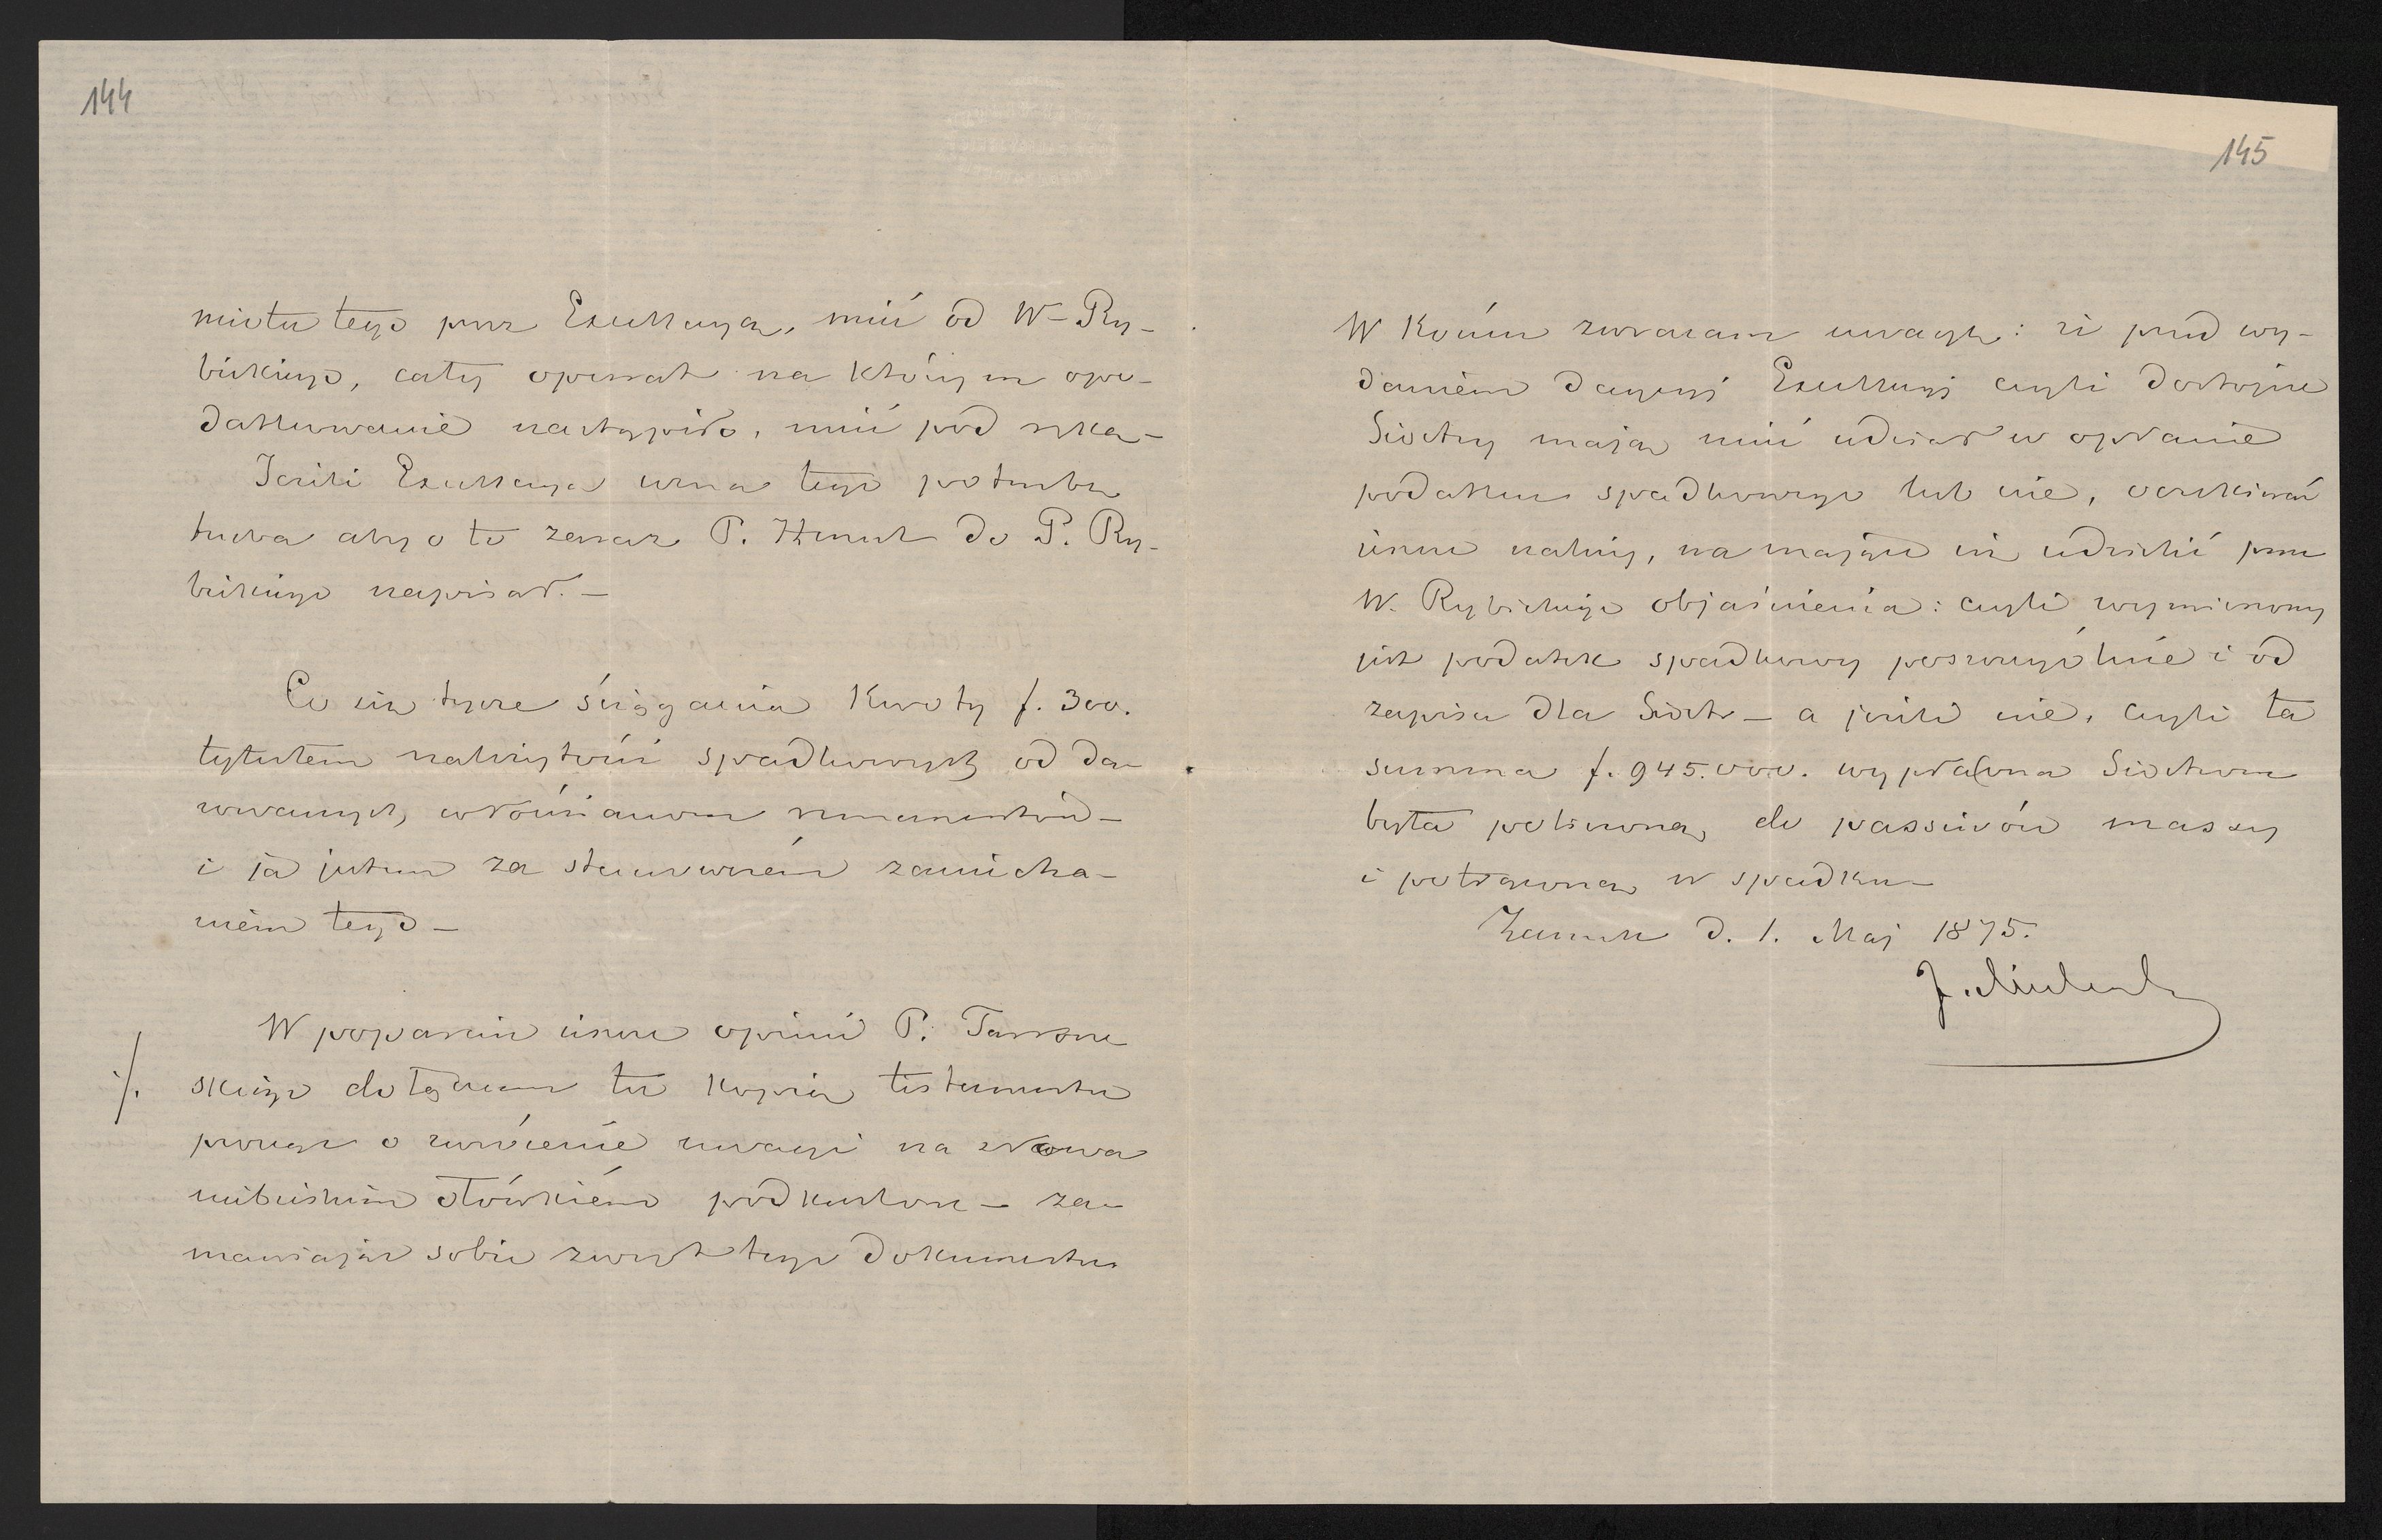 144
miotu tego przez Exekucyą, mieć od W. Ry-
bickiego, cały operat na którym opo-
datkowanie nastąpiło, mieć pod ręką —
Jeżeli Exekucya uzna tego potrzebę
trzeba aby o to zaraz P. do P. Ry-
bickiego napisał. —
Co się tycze ściągania kwoty f. 300.
tytułem należytości spadkowych od da-
rowanych, włościanom remanentów —
i ja jestem za stanowczém zaniecha-
niem tego —
W poparciu jeszcze opinii P. Tarnow-
./. skiego dołączam tu kopią testamentu
proszę o zwrócenie uwagi na słowa
niebieskim ołówkiem podkreślone — za-
mawiając sobie zwrot tego dokumentu
145
W końcu zwracam uwagę: że przed wy-
daniem decyzyi Exekucyi czyli dostojne
Siostry mają mieć udział w opłacie
podatku spadkowego lub nie, oczekiwać
jeszcze należy, na mające się udzielić przez
W. Rybickiego objaśnienia: czyli wymierzony
jest podatek spadkowy poszczególnie i od
zapisu dla Sióstr — a jeżeli nie, czyli ta
summa f. 945.000. wypłacona Siostrom
była policzoną do passivów massy
i potrąconą w spadku —
Zamek d. 1. Maj 1875.